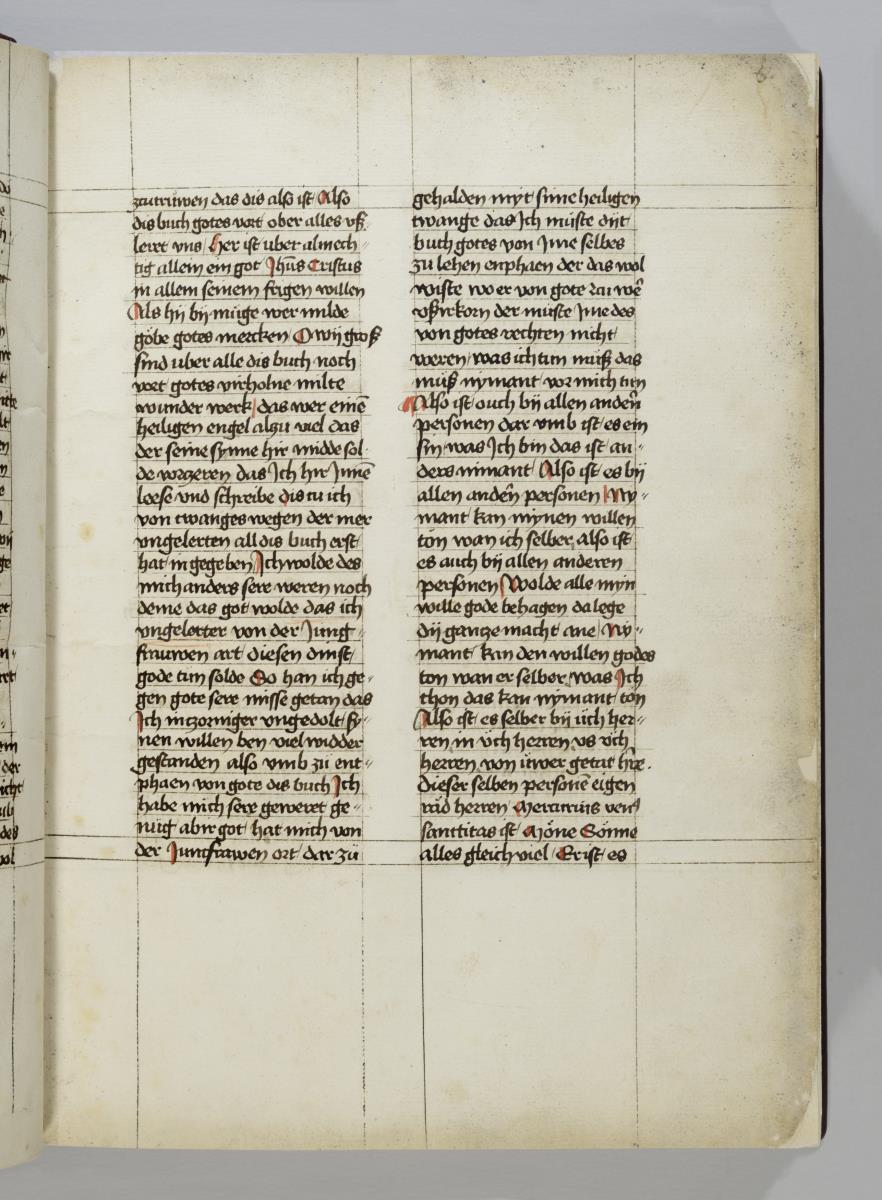 zcutruwen das dis also ist Also
dis buch gotes vort ober alles vß
leret vns Her ist uber almech-
tig allein ein got Jhūs Cristus
in allem seinem frigen willen
Als hij bij müge wer milde
göbe gotes mercken O wij groß
sind uber alle dis buch noch
vort gotes virholne milte
wunder werk das wer einē
heiligen engel alzu viel das
der seine synne hir midde sol
de vorzeren das Ich hir Innē
leese vnd schreibe dis tu ich
von twanges wegen der mer
vngelerten all dis buch erst
hat in gegeben Ich wolde des
mich anders sere weren noch
deme das got wolde das ich
vngelerter von der Jung-
frauwen art diesen dinst
gode tun solde So han ich ge-
gen gote sere misse getan das
Ich in tzorniger vngedolt sy-
nen willen ben viel widder
gestanden also vmb zü ent-
phaen von gote dis buch Ich
habe mich sere geweret ge-
nüg abir got hat mich von
der Juncfrawen ort dar zü
gehalden myt sime heiligen
twange das Ich müste dijt
buch gotes von Jme selbes
zü lehen enphaen der das wol
wiste wo er von gote zu wē
vßirkorn der müste Jme des
von gotes rechten nicht
weren was ich tun müß das
müß nymant vor mich tun
Also ist ouch bij allen andeȓn
personen dar vmb ist es ein
sin was Ich bin das ist an-
ders nimant Also ist es bij
allen andeȓn personen Ny-
mant kan mynen willen
ton wan ich selber also ist
es auch bij allen anderen
personen Wolde alle myn
wille gode behagen da lege
dij gantze macht ane Ny-
mant kan den willen godes
ton wan er selber was Ich
thon das kan nymant ton
Also ist es selber bij üch her-
ren in üch herren vs üch
herren von üwer getat
dieser selben personē eigen
rad herren Mercurius
sanctitas ist Möne Sönne
alles gleich viel Er ist es